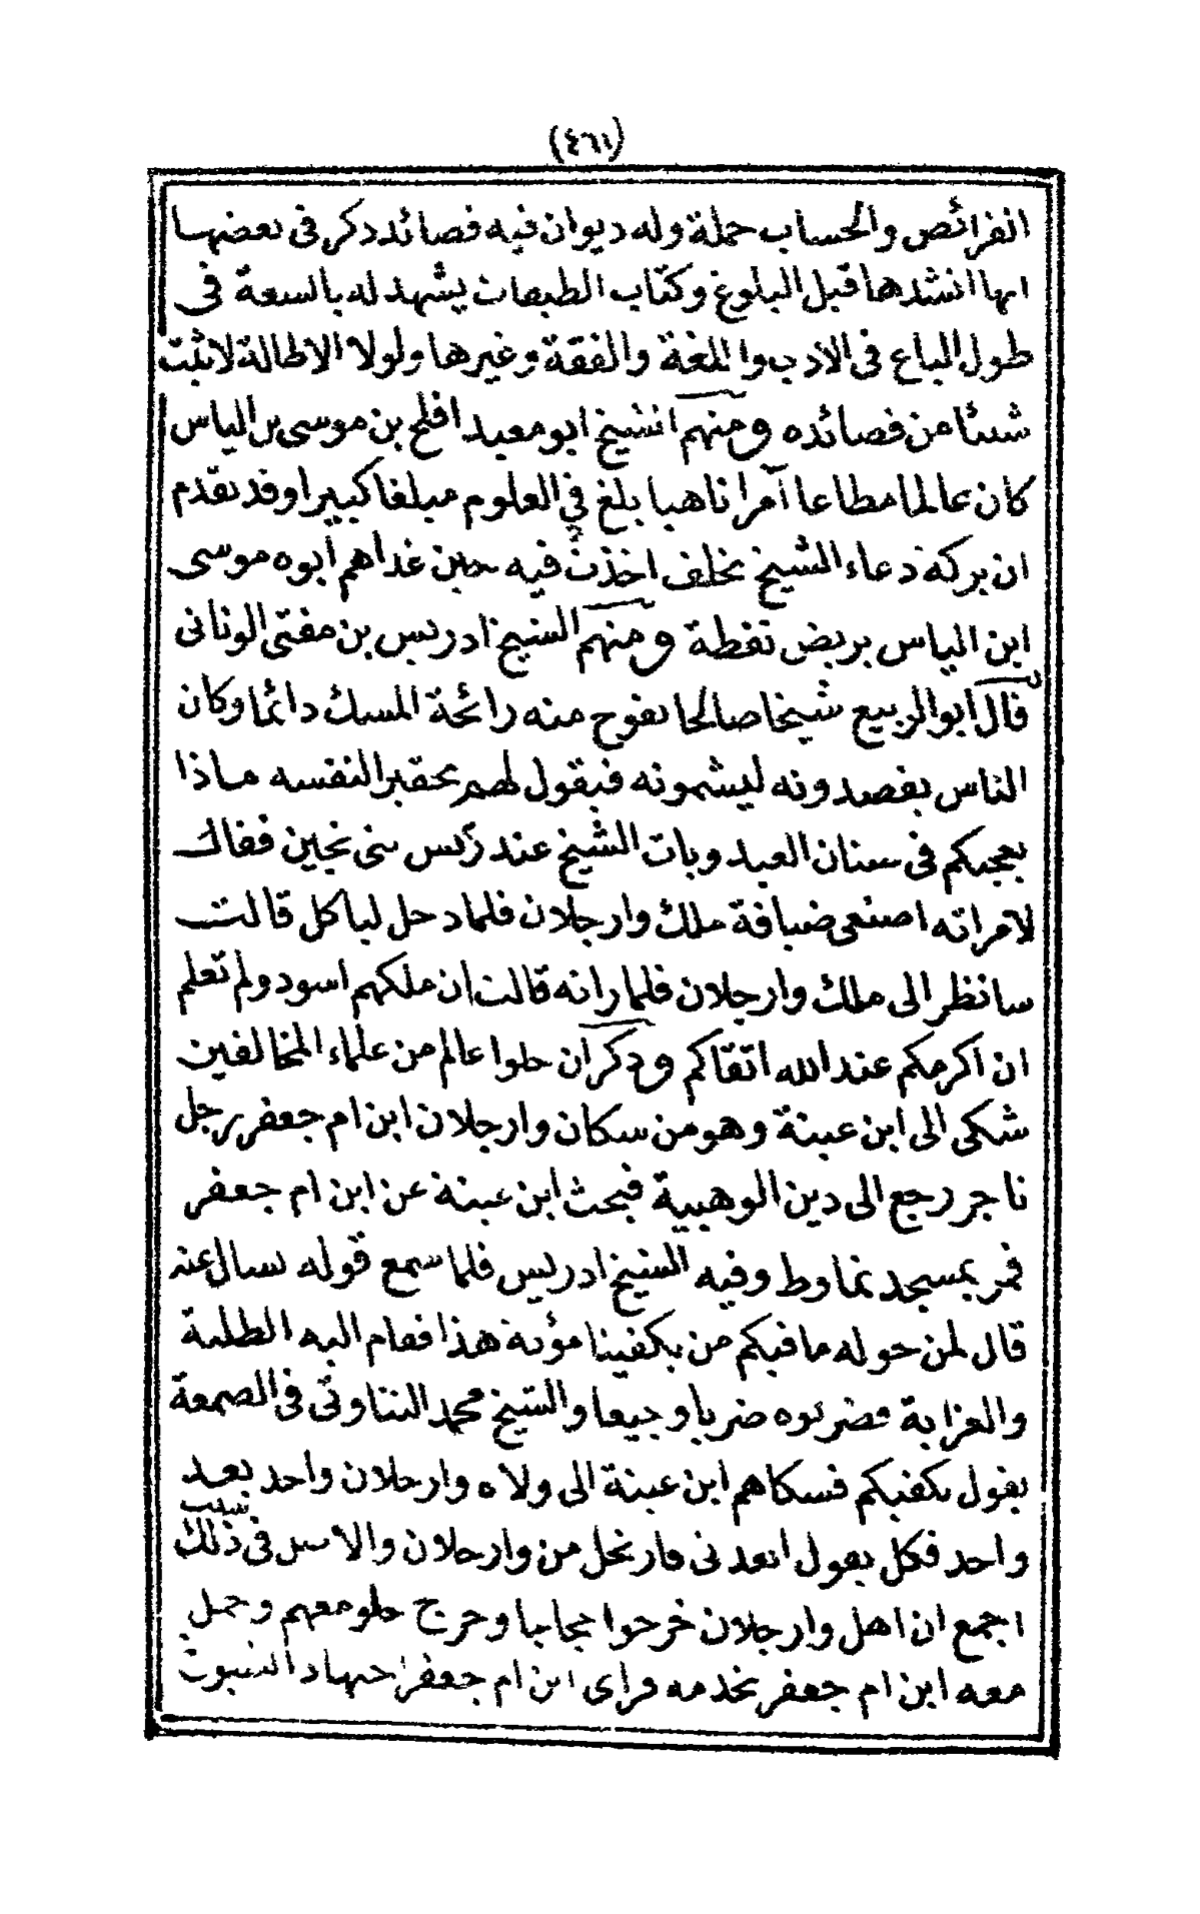 (٤٦١)
الفرائض والحساب جملة وله ديوان فيه قصائد ذكر فى بعضها
انها انشدها قبل البلوغ وكتاب الطبقات يشهد له بالسعة فى
طول الباع فى الادب واللغة والفقه وغيرها ولولا الاطالة لاثبت
شيئا من قصائده ومنهم الشيخ ابو معبد افلح بن موسى بن الياس
كان عالما مطاعا آمرا ناهيا بلغ فى العلوم مبلغا كبيرا وقد تقدم
ان بركة دعاء الشيخ يخلف اخذت فيه حين غداهم ابوه موسى
ابن الياس بربض نفطة ومنهم الشيخ ادريس بن مفتى الوناني
قال ابو الربيع شيخا صالحا يفوح منه رائحة المسك دائما وكان
الناس يقصدونه ليشمونه فيقول لهم تحقيرا لنفسه ماذا
يعجبكم فى سنان العبد وبات الشيخ عند رئيس بنى نجين فقال
لامراته اصنعى ضيافة ملك وارجلان فلما دخل لياكل قالت
سانظر الى ملك وارجلان فلما راته قالت ان ملكهم اسود ولم تعلم
ان اكرمكم عند الله اتقاكم وذكر ان حلوا عالم من علماء المخالفين
شكى الى ابن عبينة وهو من سكان وارجلان ابن ام جعفر رجل
تاجر رجع الى دين الوهبية فبحث ابن عبينة عن ابن ام جعفر
فمر بمسجد تماوط وفيه الشيخ ادريس فلما سمع قوله سال عنه
قال لمن حوله ما فيكم من يكفينا مؤنة هذا فقام اليه الطلبة
والعزابة فضربوه ضربا وجيعا والشيخ محمد التناوتى فى الصمعة
يقول يكفيكم فشكاهم ابن عبينة الى ولاة وارجلان واحد بعد
واحد فكل يقول ابعدنى فارتحل من وارجلان والاسل فى ذلك سبب
اجمع ان اهل وارجلان خرجوا حجاجا وخرج حلو معهم وحمل
معه ابن ام جعفر يخدمه فراى ابن ام جعفر اجتهاد الشيوخ